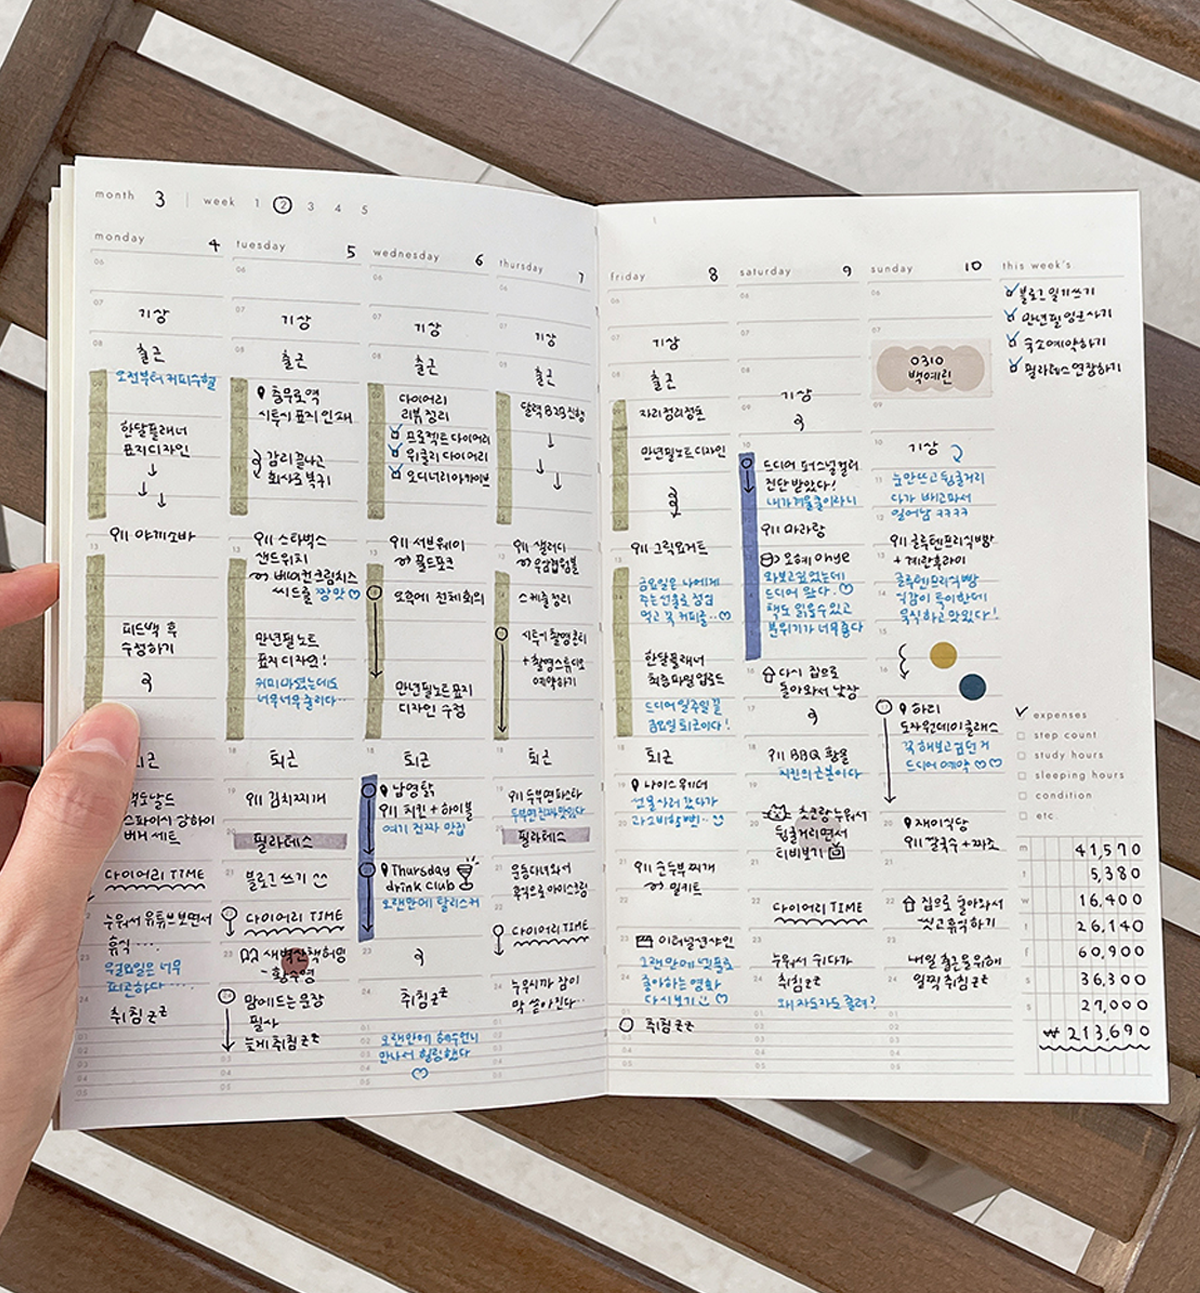 month 3 | week 1 2 3 4 5
monday 4
06
07
기상
08
출근
오전부터 커피수혈
한달플래너
표지디자인
위 야끼소바
13
14
피드백 후
수정하기
퇴근
맥도날드
스파이시 상하이
버거 세트
다이어리 TIME
누워서 유튜브보면서
휴식 ····
23
우월요일은 너무
피곤하다 ····
24
취침 zz
tuesday 5
06
07
기상
08
출근
충무로역
시투시 표지 인쇄
감리 끝나고
회사로 복귀
위 스타벅스
샌드위치
베이컨크림치즈
씨드롤 짱맛♡
만년필노트
표지디자인!
커피마셨는데도
너무너무졸리다··
18
퇴근
19
위 김치찌개
20
필라테스
21
블로그 쓰기
다이어리 TIME
새벽산책허밍
- 황수영
맘에드는 문장
필사
늦게 취침 zz
wednesday 6
06
07
기상
08
출근
다이어리
리뷰 정리
프로젝트 다이어리
위클리 다이어리
오디너리아카이브
위 서브웨이
풀드포크
오후에 전체회의
만년필노트표지
디자인 수정
18
퇴근
남영탉
위 치킨+하이볼
여기 진짜 맛집
Thursday
drink club
오랜만에 탈리스커
23
24
취침 zz
오랜만에 혜수언니
만나서 힐링했다
♡
thursday 7
06
07
기상
08
출근
달력 B2B 진행
위 샐러디
우삼겹웜볼
스케줄정리
시투시 촬영콘티
+ 촬영스튜디오
예약하기
18
퇴근
19
위 두부면파스타
두부면진짜맛있다
필라테스
운동다녀와서
후식으로아이스크림
다이어리TIME
누워서까 잠이
막 쏟아진다··
friday 8
06
07
기상
08
출근
자리정리정돈
만년필노트디자인
위 그릭요거트
금요일은 나에게
주는선물로 점심
먹고 꼭 커피를··♡
한달플래너
최종파일업로드
드디어 일주일 끝
금요일 퇴근이다!
18
퇴근
나이스웨더
선물사러 갔다가
과소비할뻔··
21
위 순두부찌개
밀키트
22
23
이터널선샤인
오랜만에 넷플로
좋아하는 영화
다시보기 ♡
취침 zz
saturday 9
06
07
08
기상
10
드디어 퍼스널컬러
진단받았다!
내가겨울쿨이라니
위 마라탕
오혜 ohye
와보고싶었는데
드디어 왔다.♡
책도 읽을수있고
분위기가 너무좋다
16
다시 집으로
돌아와서 낮잠
17
18
위 BBQ 황올
치킨의근본이다
초코랑누워서
뒹굴거리면서
티비보기
22
다이어리 TIME
23
누워서 쉬다가
24
취침 zz
왜 자도자도 졸려?
sunday 10
06
07
0310
백예린
09
10
기상
11
눈만뜨고뒹굴거리
다가 배고파서
일어남 ㅋㅋㅋㅋ
위 글루텐프리식빵
+ 계란후라이
글루텐프리식빵
식감이 특이한데
묵직하고맛있다!
15
16
하리
도자원데이클래스
꼭 해보고 싶던거
드디어 예약 ♡♡
재이식당
위 칼국수+짜조
21
22
집으로 돌아와서
씻고휴식하기
23
내일 출근을위해
24
일찍 취침 zz
this week's
블로그일기쓰기
만년필잉크사기
숙소예약하기
필라테스연장하기
expenses
step count
study hours
sleeping hours
condition
etc
m 41,570
t 5,380
w 16,400
t 26,140
f 60,900
s 36,300
s 27,000
₩ 213,690